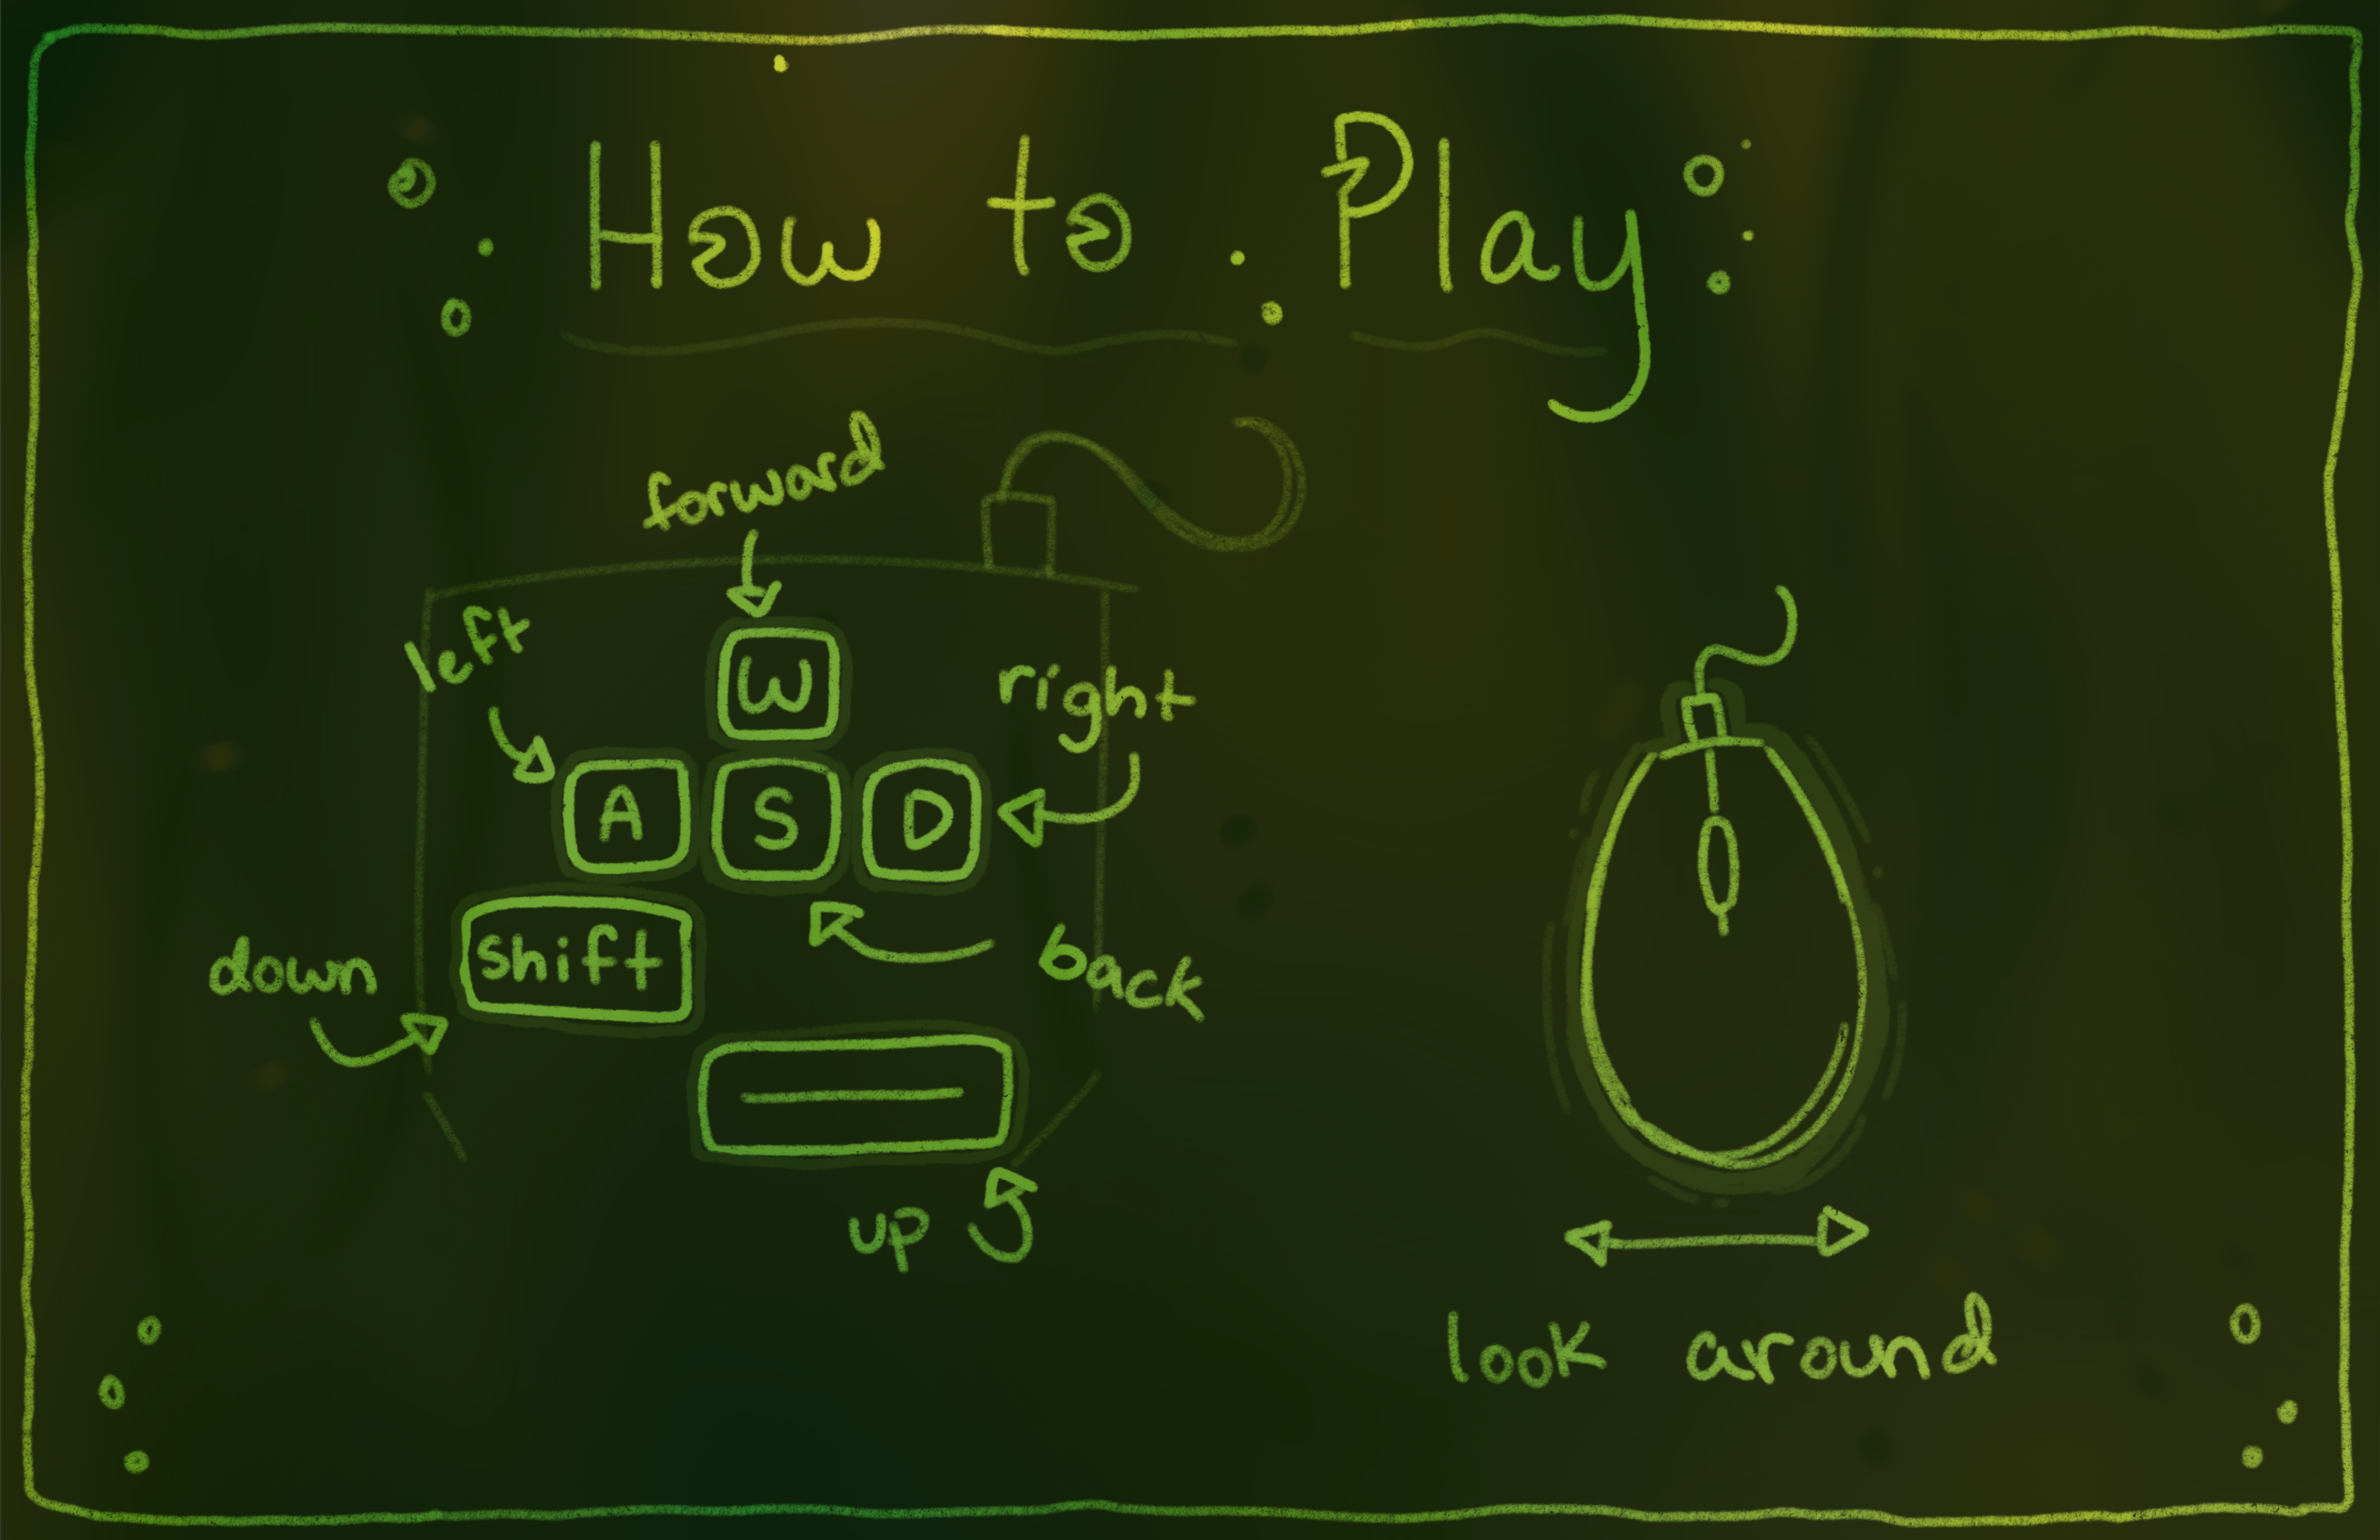 How to Play
forward
left
W
right
A S D
shift
down
back
up
look around